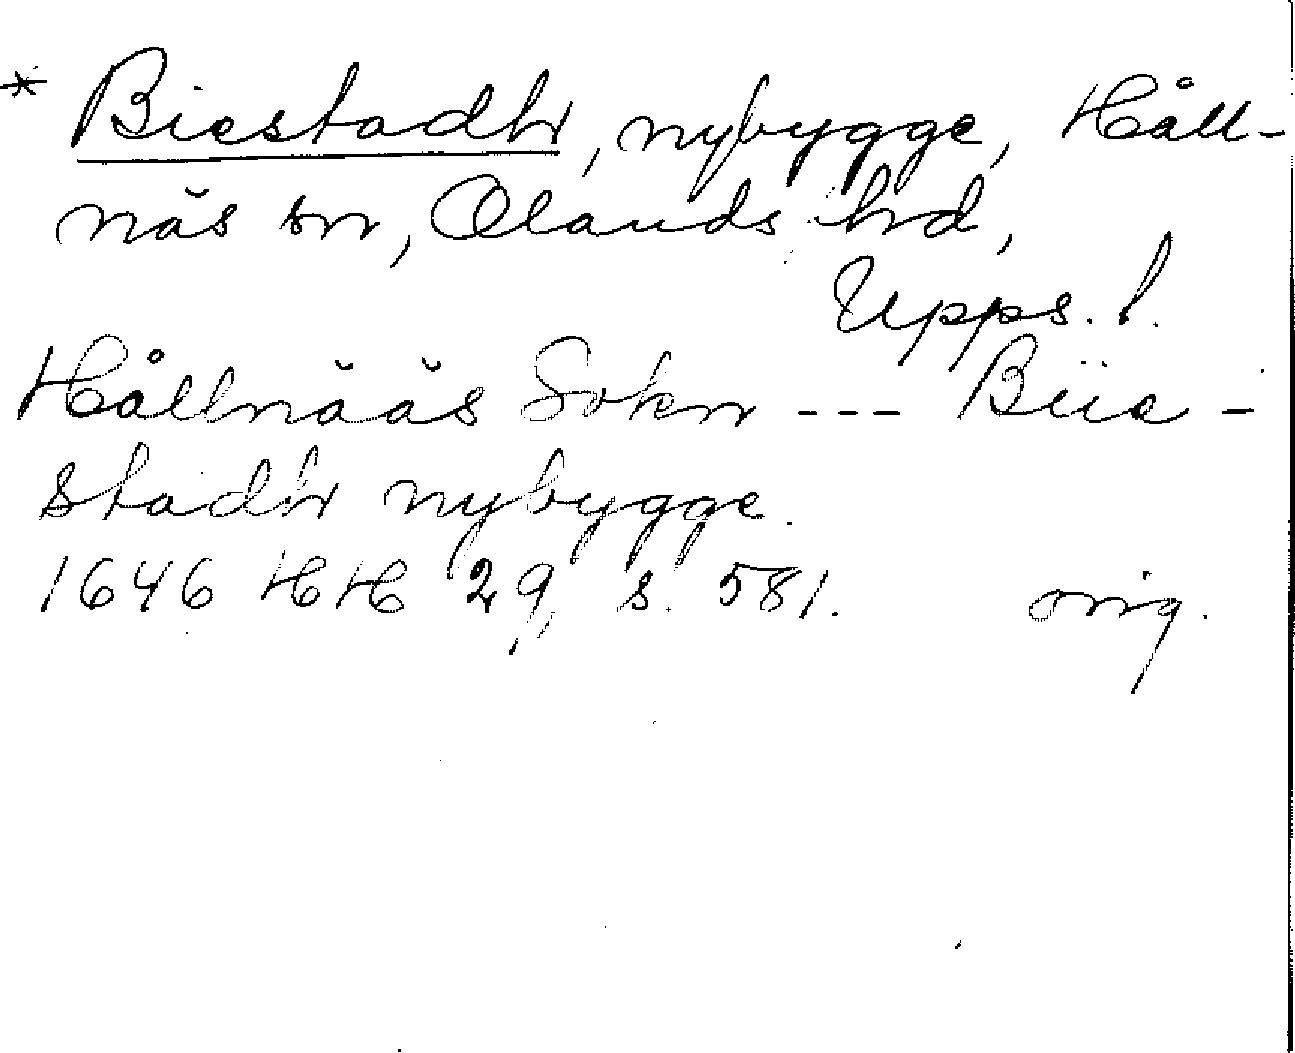 * Biestadh, nybygge, Håll-
näs sn, Olands hd,
Upps. l.
Hållnääs Sokn --- Biie-
stadh nybygge.
1646 HH 29, s. 581. orig.